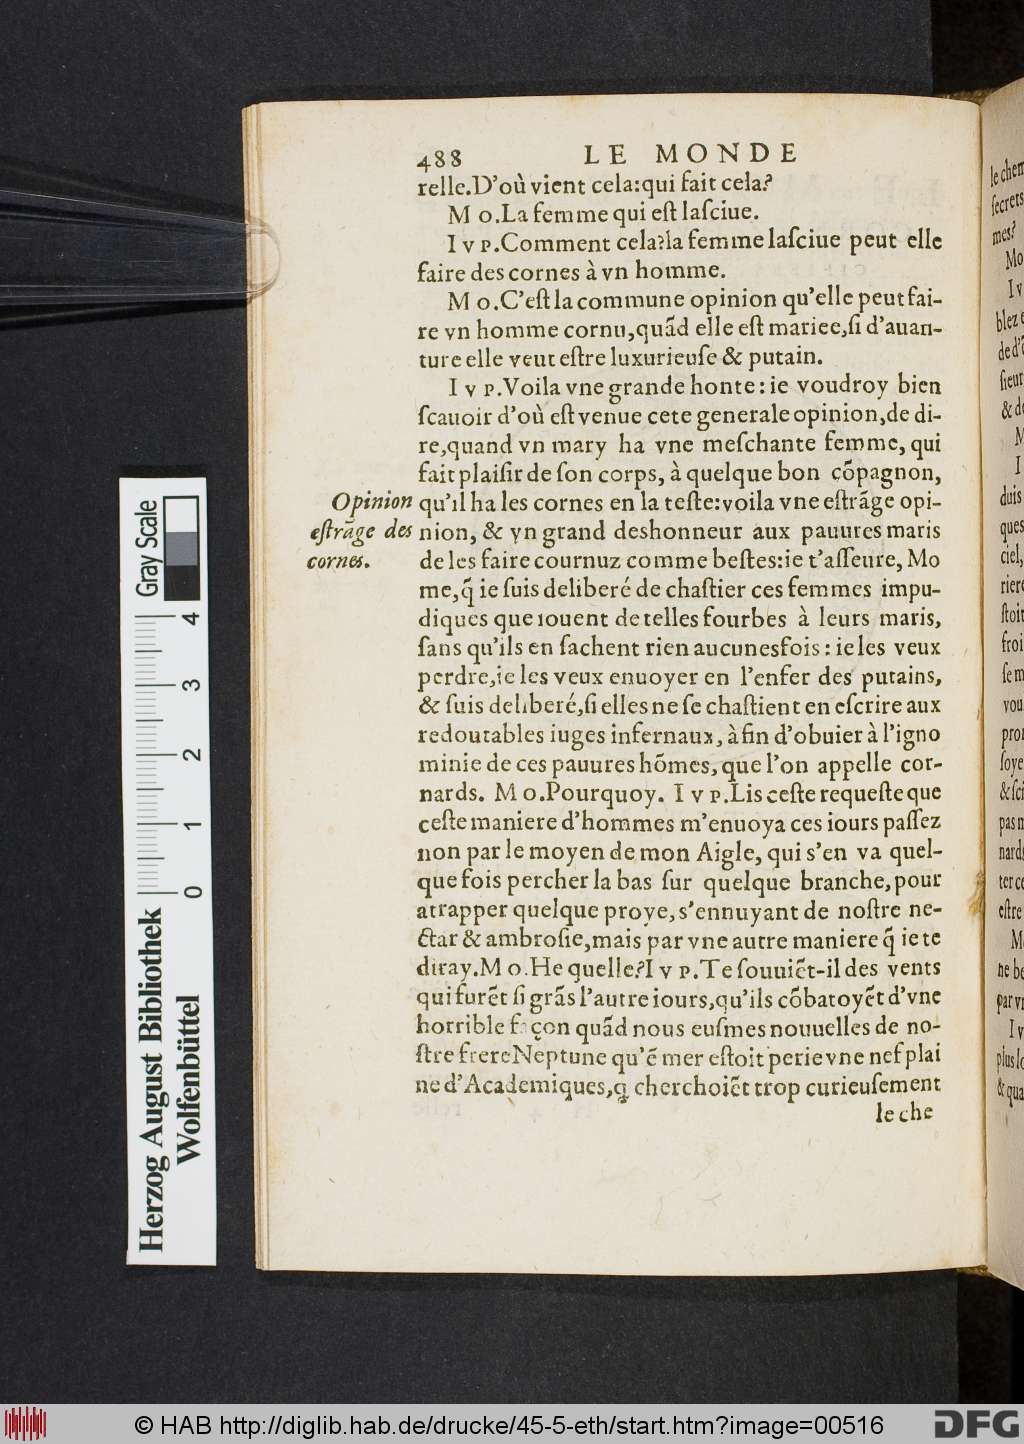 488 LE MONDE
relle.D'où vient cela:qui fait cela?
M o.La femme qui eſt laſciue.
I v p.Comment cela?la femme laſciue peut elle
faire des cornes à vn homme.
M o.C'eſt la commune opinion qu'elle peut fai-
re vn homme cornu,quãd elle eſt mariee,ſi d'auan-
ture elle veut eſtre luxurieuſe & putain.
I v p.Voila vne grande honte:ie voudroy bien
ſcauoir d'où eſt venue cete generale opinion,de di-
re,quand vn mary ha vne meſchante femme, qui
fait plaiſir de ſon corps, à quelque bon cõpagnon,
qu'il ha les cornes en la teſte:voila vne eſtrãge opi-
nion, & vn grand deshonneur aux pauures maris
de les faire cournuz comme beſtes:ie t'aſſeure, Mo
me,q̃ ie ſuis deliberé de chaſtier ces femmes impu-
diques que iouent de telles fourbes à leurs maris,
ſans qu'ils en ſachent rien aucunesfois : ie les veux
perdre,ie les veux enuoyer en l'enfer des putains,
& ſuis deliberé,ſi elles ne ſe chaſtient en eſcrire aux
redoutables iuges infernaux, àfin d'obuier à l'igno
minie de ces pauures hõmes, que l'on appelle cor-
nards. M o.Pourquoy. I v p.Lis ceſte requeſte que
ceſte maniere d'hommes m'enuoya ces iours paſſez
non par le moyen de mon Aigle, qui s'en va quel-
que fois percher la bas ſur quelque branche, pour
atrapper quelque proye, s'ennuyant de noſtre ne-
ctar & ambroſie,mais par vne autre maniere q̃ ie te
diray.M o.He quelle?I v p.Te ſouuiẽt-il des vents
qui furẽt ſi grãs l'autre iours,qu'ils cõbatoyẽt d'vne
horrible façon quãd nous euſmes nouuelles de no-
ſtre frere Neptune qu'ẽ mer eſtoit perie vne nef plai
ne d'Academiques,q̃ cherchoiẽt trop curieuſement
le che
Opinion
eſtrãge des
cornes.
le chem
ſecrets
mes?
Mo
I v
blez e
ſieur
& de
M
I
duis
ques
ciel,
riere
ſtoit
froi
ſe m
vou
pro
ſoye
& ſci
pas m
nards
ter ce
eſtre
M
ne be
par vn
I v
plus lo
& qua
Gray Scale
4
3
2
1
0
Herzog August Bibliothek
Wolfenbüttel
© HAB http://diglib.hab.de/drucke/45-5-eth/start.htm?image=00516
DFG